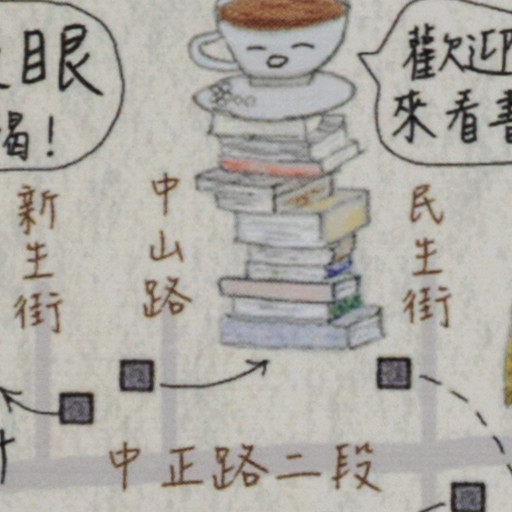 眼
喝！
歡迎
來看書
新生街
中山路
民生街
中正路二段